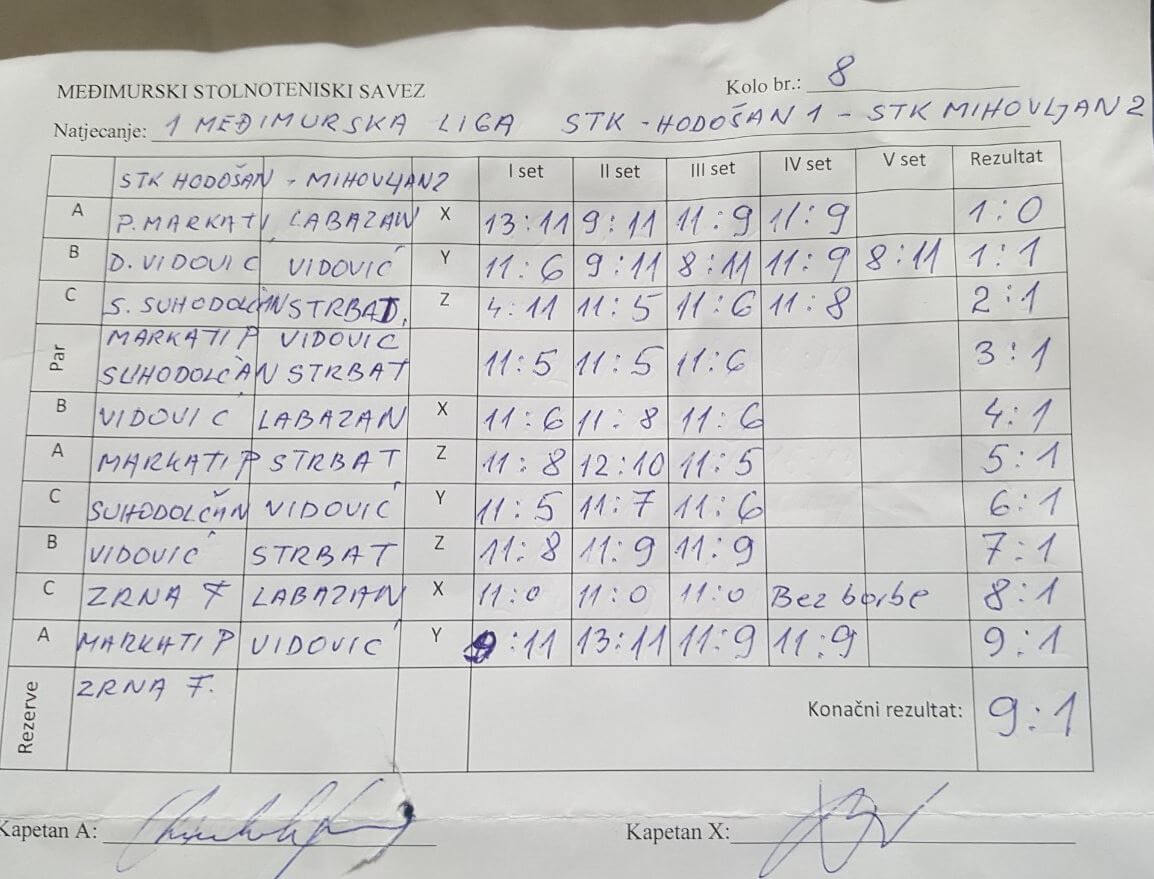 MEĐIMURSKI STOLNOTENISKI SAVEZ Kolo br.: 8
Natjecanje: 1 MEĐIMURSKA LIGA STK - HODOŠAN 1 - STK MIHOVLJAN 2
STK HODOŠAN - MIHOVLJAN2 I set II set III set IV set V set Rezultat
A P. MARKATI LABAZAN X 13:11 9:11 11:9 11:9 1:0
B D. VIDOVIĆ VIDOVIĆ Y 11:6 9:11 8:11 11:9 8:11 1:1
C S. SUHODOLČAN STRBAT Z 4:11 11:5 11:6 11:8 2:1
Par MARKATI P VIDOVIC
SUHODOLČAN STRBAT 11:5 11:5 11:6 3:1
B VIDOVIĆ LABAZAN X 11:6 11:8 11:6 4:1
A MARKATI P STRBAT Z 11:8 12:10 11:5 5:1
C SUHODOLČAN VIDOVIĆ Y 11:5 11:7 11:6 6:1
B VIDOVIĆ STRBAT Z 11:8 11:9 11:9 7:1
C ZRNA F LABAZAN X 11:0 11:0 11:0 Bez borbe 8:1
A MARKATI P VIDOVIĆ Y 9:11 13:11 11:9 11:9 9:1
Rezerve ZRNA F.
Konačni rezultat: 9:1
Kapetan A: Kapetan X: